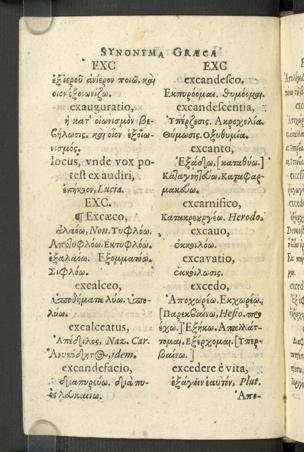 SYNONYMA GRÆCA
EXC
ἐξιεροῦ ἀνίερον ποιῶ. καὶ
οἷον ἐξοιωνίζω.
exauguratio,
ἡ κατ' οἰωνισμὸν βε-
βήλωσις. καὶ οἷον ἐξοίω-
νισμός.
locus, vnde vox po-
test exaudiri,
ἐπήκοον, Lucia.
EXC.
¶ Excæco,
ἀλαόω, Non. Τυφλόω.
Αποτυφλόω. Εκτυφλόω.
ἐξαλαόω. Εξομματόω.
Σιφλόω.
excalceo,
ὑποδήματα λύω. ὑπο-
λύω.
excalceatus,
Ἀπέδιλος, Naz. Car.
Ἀνυπόδητος, idem.
excandefacio,
διαπυρεύω.
EXC
excandesco,
Εκπυρόομαι. Θυμόομαι.
excandescentia,
Ὑπέρζεσις. Ακροχολία.
Θύμωσις. Οξυθυμία.
excanto,
Ἐξᾴδω, [κατεθύω.]
Καταγοητεύω. Καταφαρ-
μακεύω.
excarnifico,
Κατακρεουργέω. Herodo.
excauo,
ἐκκοιλόω.
excauatio,
ἐκκοίλωσις.
excedo,
Αποχωρέω. Εκχωρέω.
[Παρεκβαίνω, Hesio. προ
έχω.] Ἐξήκω. Απαλλάτ-
τομαι. Εξέρχομαι. [Ὑπερ-
βαίνω.]
excedere è vita,
ἐξάγειν ἑαυτόν, Plut.
Ἀπο-